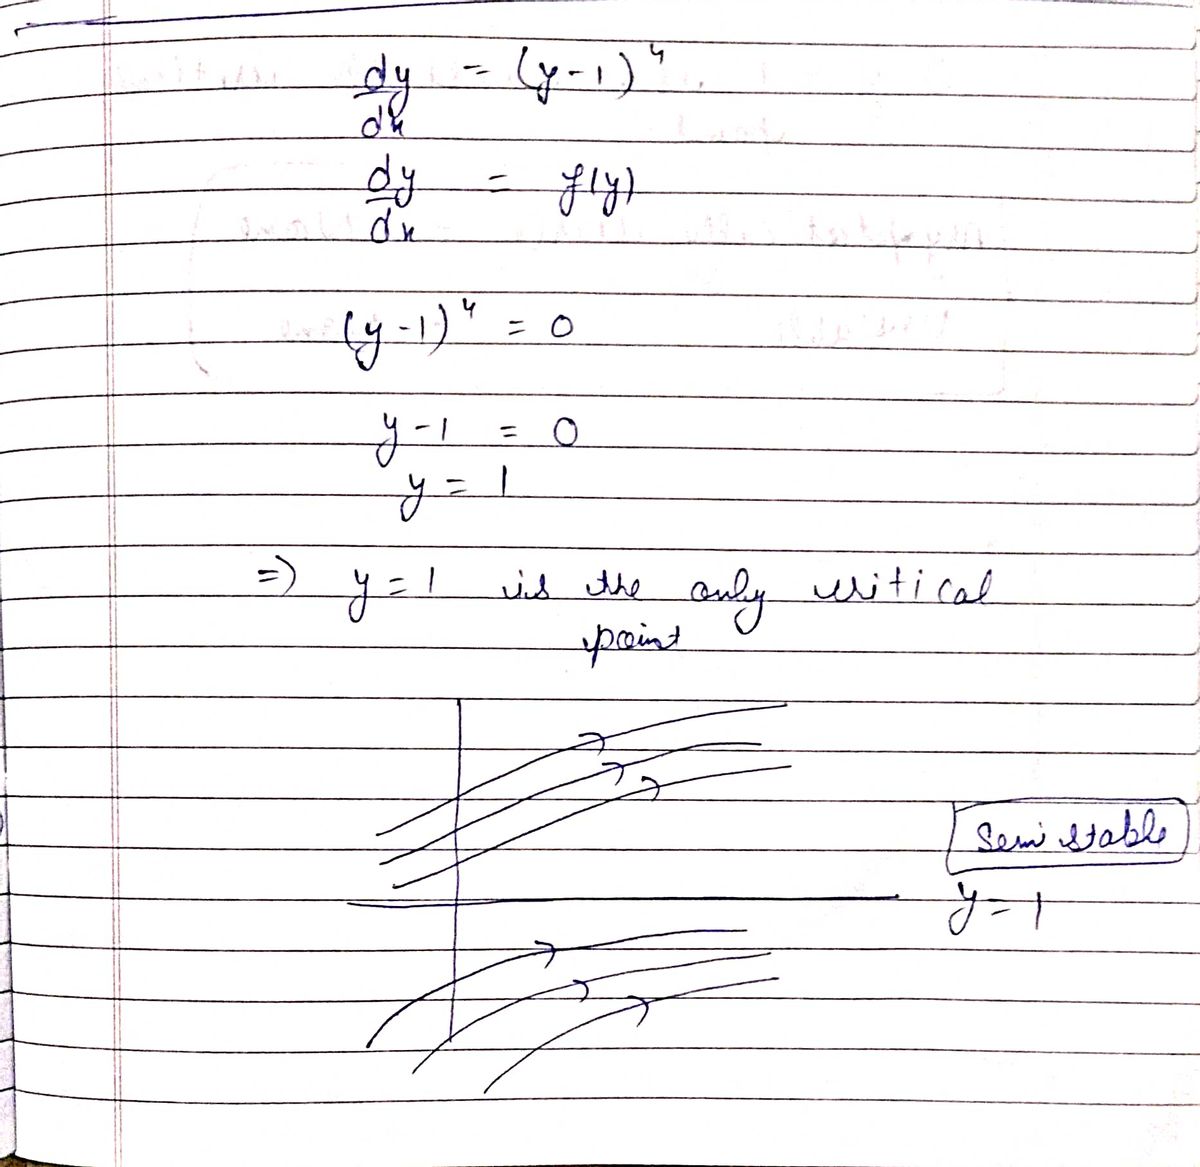 dy/dx = (y-1)⁴
dy/dx = f(y)
(y-1)⁴ = 0
y-1 = 0
y = 1
=) y=1 is the only critical
point
Semi stable
y=1